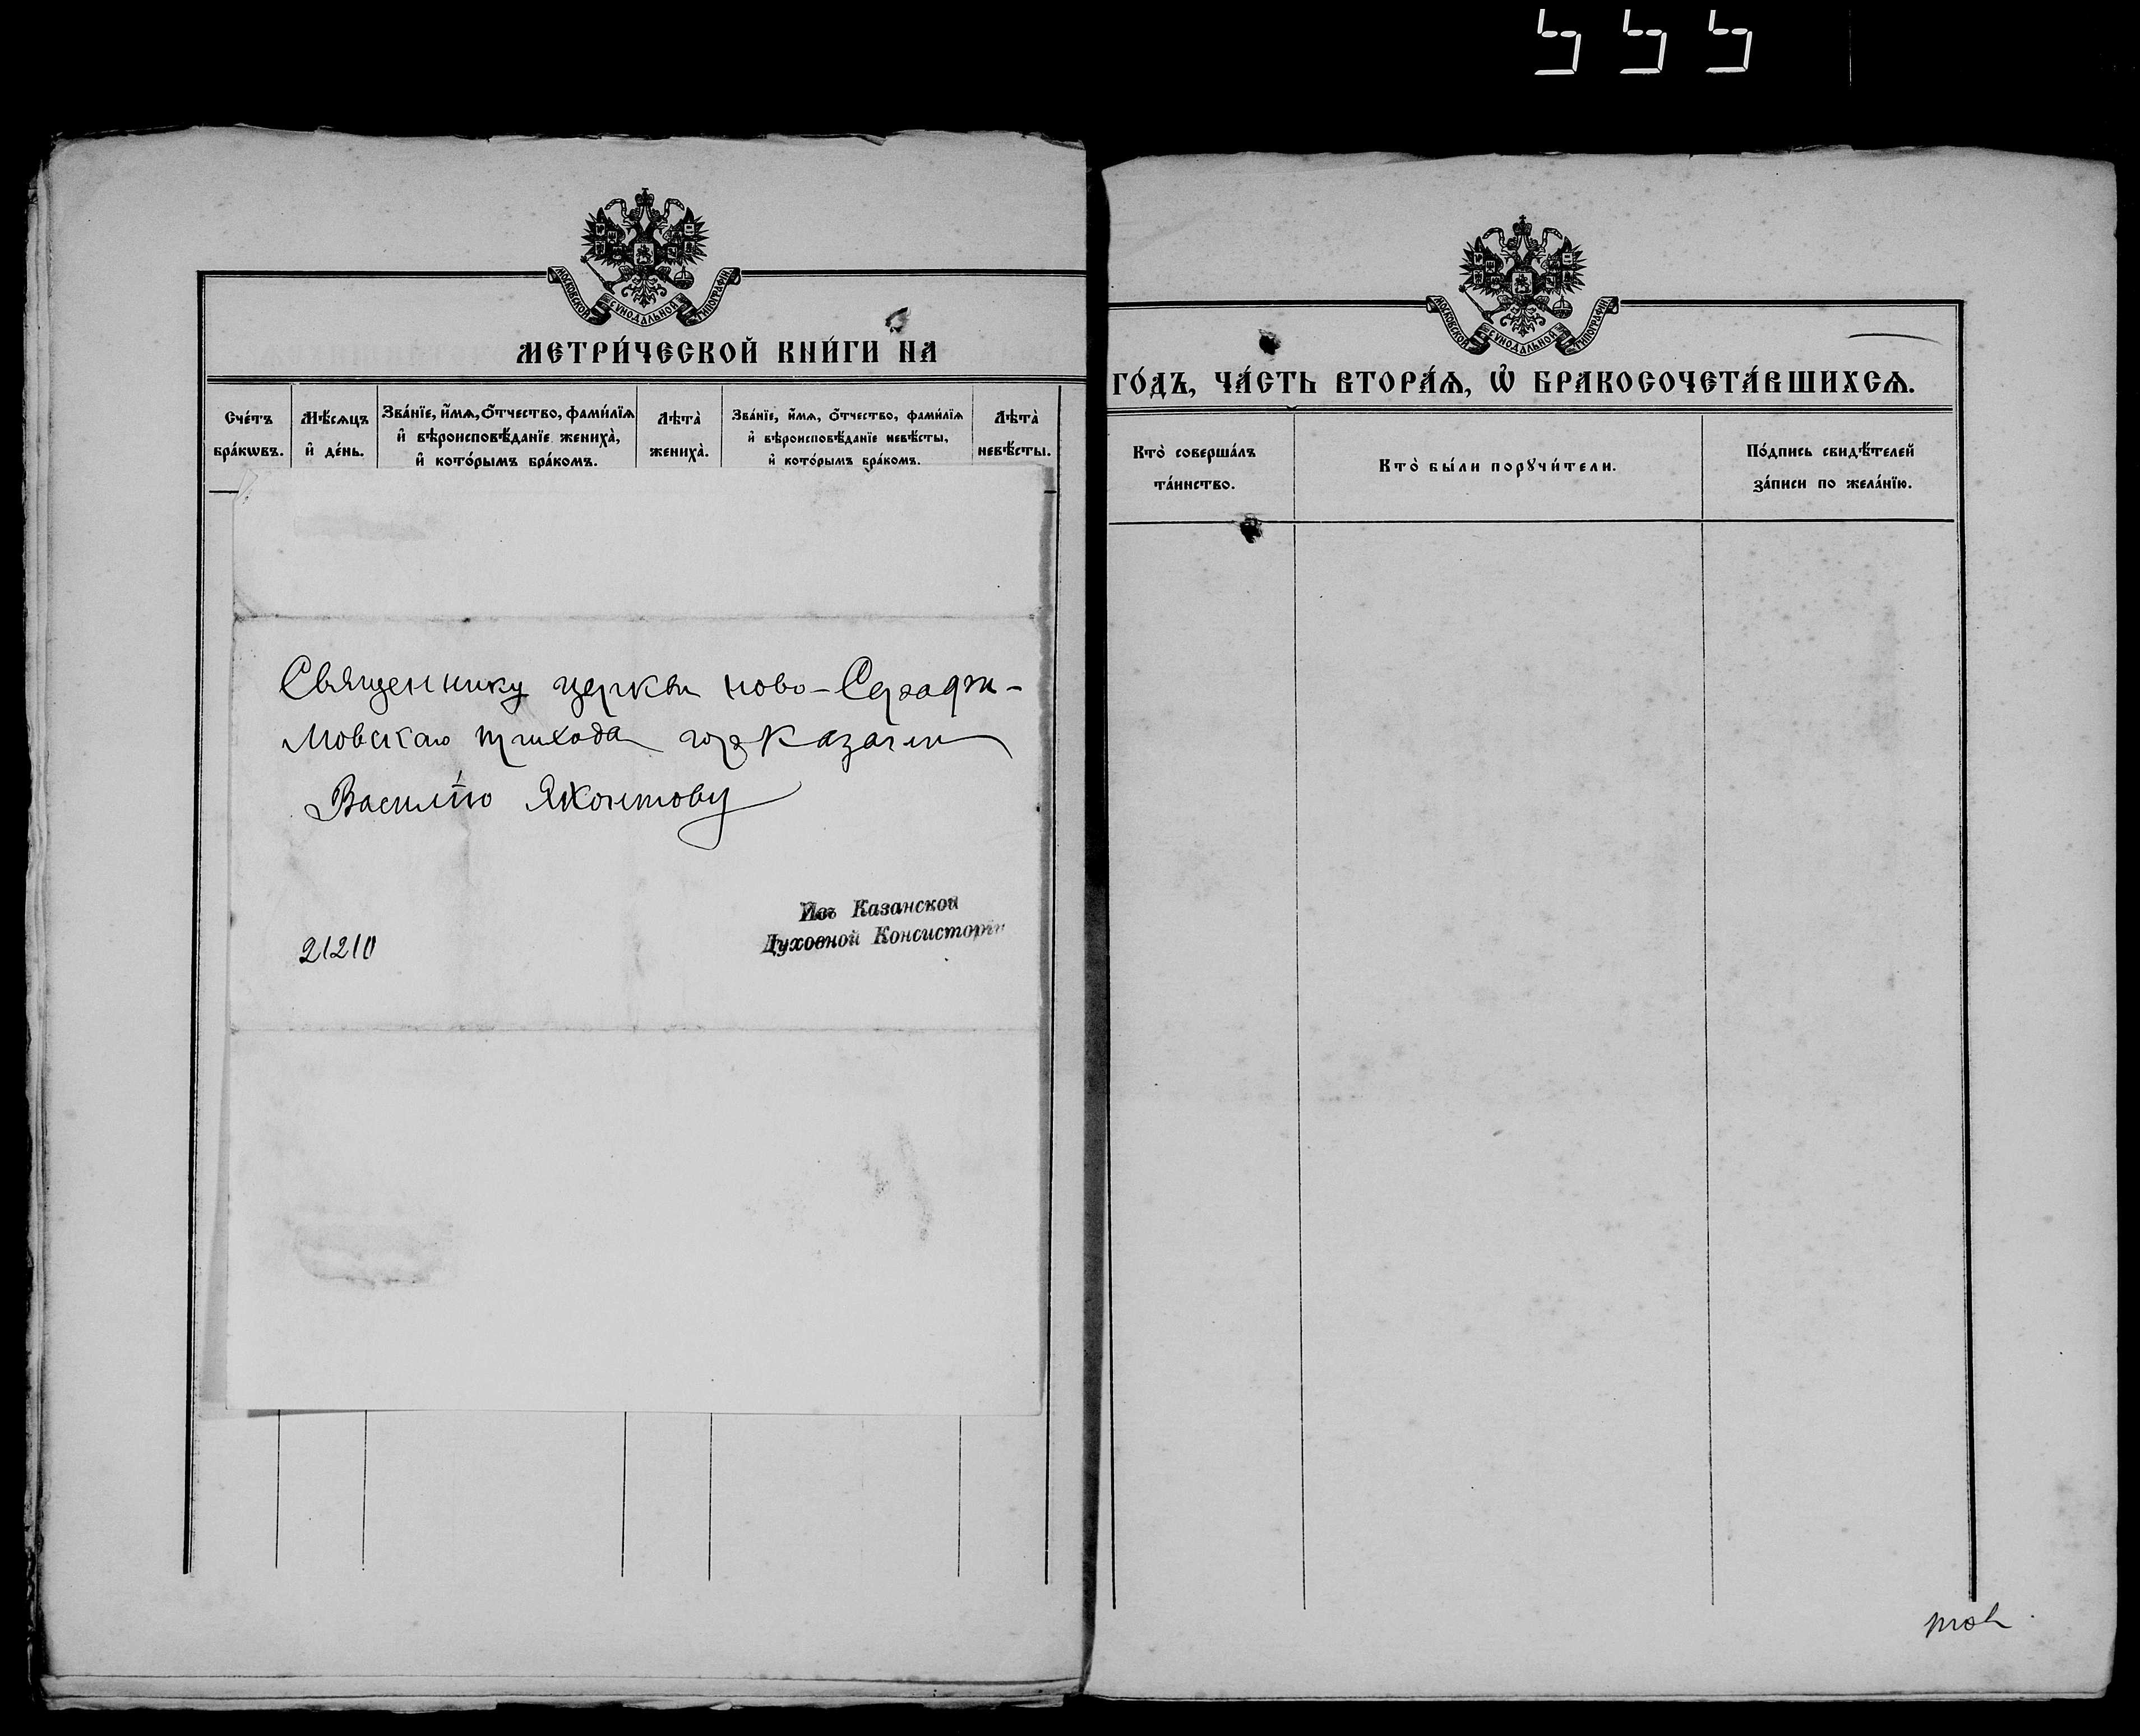 МОСКОВСКОЙ СѴНОДАЛЬНОЙ ТИПОГРАФІИ
МЕТРИ́ЧЕСКОЙ КНИ́ГИ НА
Сче́тъ бра́кѡвъ.
Мѣ́сѧцъ и҆ де́нь.
Зва́нїе, и҆́мѧ, ѻ҆́тчество, фами́лїѧ и҆ вѣроисповѣ́данїе жениха̀, и҆ кото́рымъ бра́комъ.
Лѣта̀ жениха̀.
Зва́нїе, и҆́мѧ, ѻ҆́тчество, фами́лїѧ и҆ вѣроисповѣ́данїе невѣ́сты, и҆ кото́рымъ бра́комъ.
Лѣта̀ невѣ́сты.
Священнику церкви ново-Серафи-
мовскаго прихода гор Казани
Василію Яхонтову
Изъ Казанской
Духовной Консисторіи
21210
МОСКОВСКОЙ СѴНОДАЛЬНОЙ ТИПОГРАФІИ
ГО́ДЪ, ЧА́СТЬ ВТОРА́Ѧ, Ѡ҆ БРАКОСОЧЕТА́ВШИХСѦ.
Кто̀ соверша́лъ та́инство.
Кто̀ бы́ли порꙋчи́тели.
По́дпись свидѣ́телей за́писи по жела́нїю.